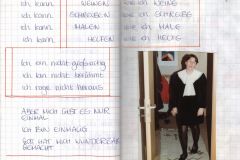 ich kann WEINEN wie ich WEINE
ich kann SCHREIBEN wie ich SCHREIBE
ich kann MALEN wie ich MALE
ich kann HELFEN wie ich HELFE
Ich bin nicht großartig
Ich bin nicht berühmt
Ich rage nicht heraus
ABER MICH GIBT ES NUR
EINMAL
ICH BIN EINMALIG
GOTT HAT MICH WUNDERBAR
GEMACHT